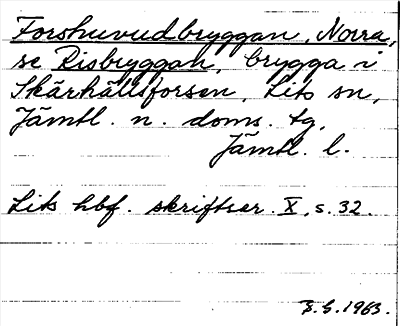 Forshuvudbryggan, Norra,
se Risbryggan, brygga i
Skärhällsforsen, Lits sn,
Jämtl. n. doms. tg,
Jämtl. l.
Lits hbf. skriftser. X, s. 32.
B. G. 1963.